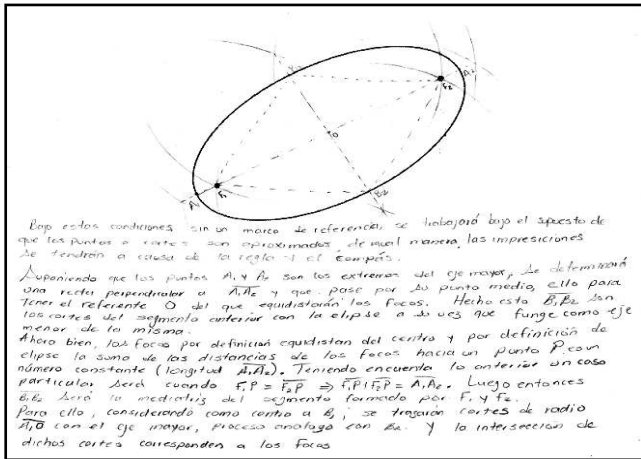 B₁
F₂
A₂
O
F₁
A₁
B₂
Bajo estas condiciones sin un marco de referencia, se trabajará bajo el supuesto de
que los puntos o cortes son aproximados, de igual manera, las impresiciones
se tendrán a causa de la regla y el compás.
Suponiendo que los puntos A₁ y A₂ son los extremos del eje mayor, se determinará
una recta perpendicular a A₁A₂ y que pase por su punto medio, ello para
tener el referente O del que equidistarán los focos. Hecho esto B₁B₂ son
los cortes del segmento anterior con la elipse a su vez que funge como eje
menor de la misma.
Ahora bien, los focos por definición equidistan del centro y por definición de
elipse la suma de las distancias de los focos hacia un punto P, es un
número constante (longitud A₁A₂). Teniendo encuenta lo anterior un caso
particular será cuando F₁P = F₂P ⇒ F₁P + F₂P = A₁A₂. Luego entonces
B₁B₂ será la mediatriz del segmento formado por F₁ y F₂.
Para ello, considerando como centro a B₁, se trazarán cortes de radio
A₁O con el eje mayor, proceso analogo con B₂. Y la intersección de
dichos cortes corresponden a los focos